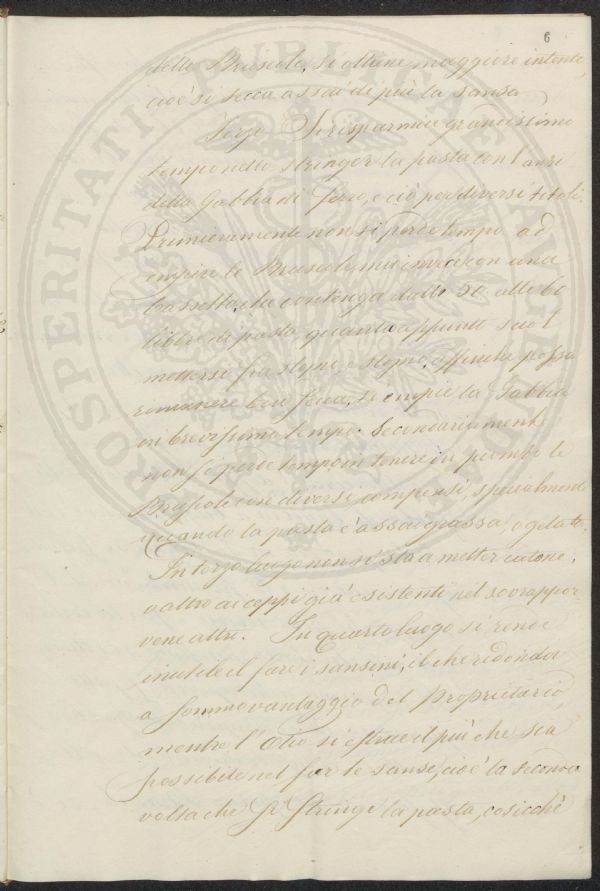 6
delle Bruscole, si ottiene maggiore intento,
cioè si secca assai di più la sansa.
Terzo. Si risparmia grandissimo
tempo nello stringer la pasta con l'
della Gabbia di Ferro, e ciò per diversi titoli.
Primieramente non si perde tempo ad
empire le Bruscole, ma invece con una
cassetta, che contenga dalle 50 alle 60
libbre di pasta, quanta appunto suol
mettersi fra stipne, e stipne, affinchè possa
rimanere ben secca, si empie la Gabbia
in brevissimo tempo. Secondariamente
non si perde tempo in tenere in piombo le
Bruscole con diversi compensi, specialmente
quando la pasta è assai grassa, o gelata.
In terzo luogo non si sta a metter catene,
o altro ai ceppi già esistenti nel sovrappor-
vene altri. In quarto luogo si rende
inutile il fare i sansini, il che ridonda
a sommo vantaggio del proprietario,
mentre l'Olio si estrae il più che sia
possibile nel far le sanse, cioè la seconda
volta che si stringe la pasta, cosicchè
PROSPERITATI PUBLICAE AUGENDAE